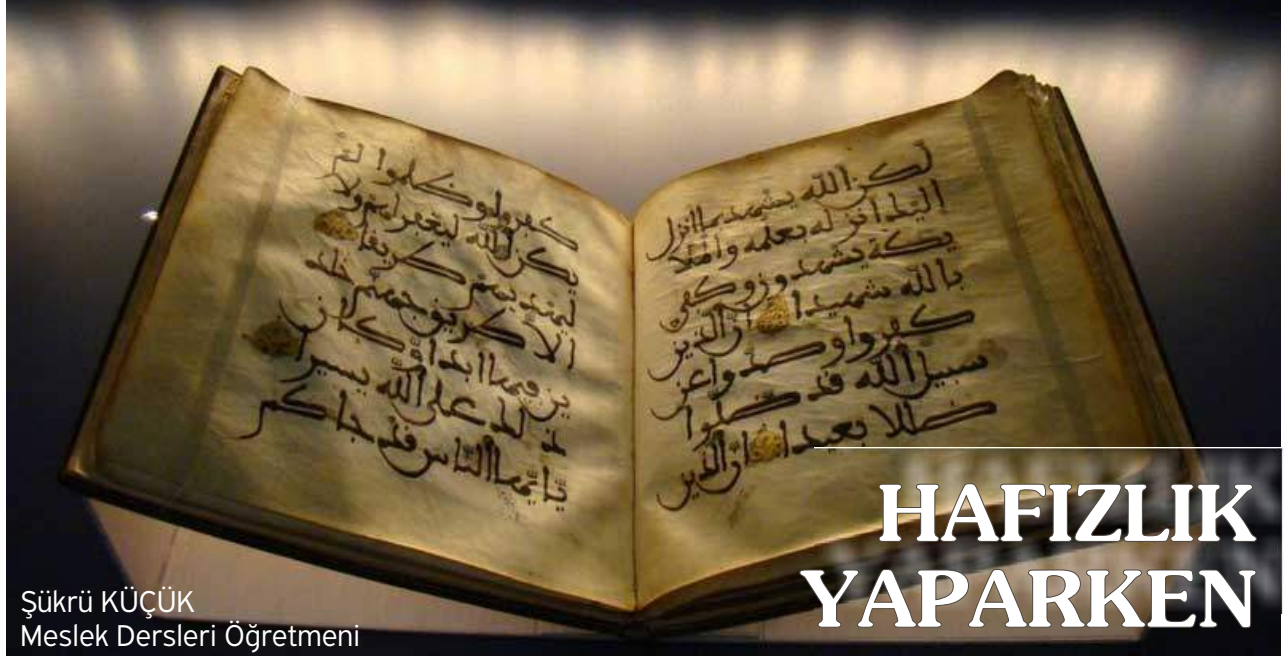 لكن الله يشهد بما انزل
اليك انزله بعلمه والملا
يكة يشهدون وكفى
بالله شهيدا ان الذين
كفروا وصدوا عن
سبيل الله قد ضلوا
ضللا بعيدا ان الذين
كفروا وظلموا لم
يكن الله ليغفر لهم ولا
ليهديهم طريقا
الا طريق جهنم خلد
ين فيها ابدا وكان
ذلك على الله يسيرا
يايها الناس قد جاكم
HAFIZLIK
YAPARKEN
Şükrü KÜÇÜK
Meslek Dersleri Öğretmeni